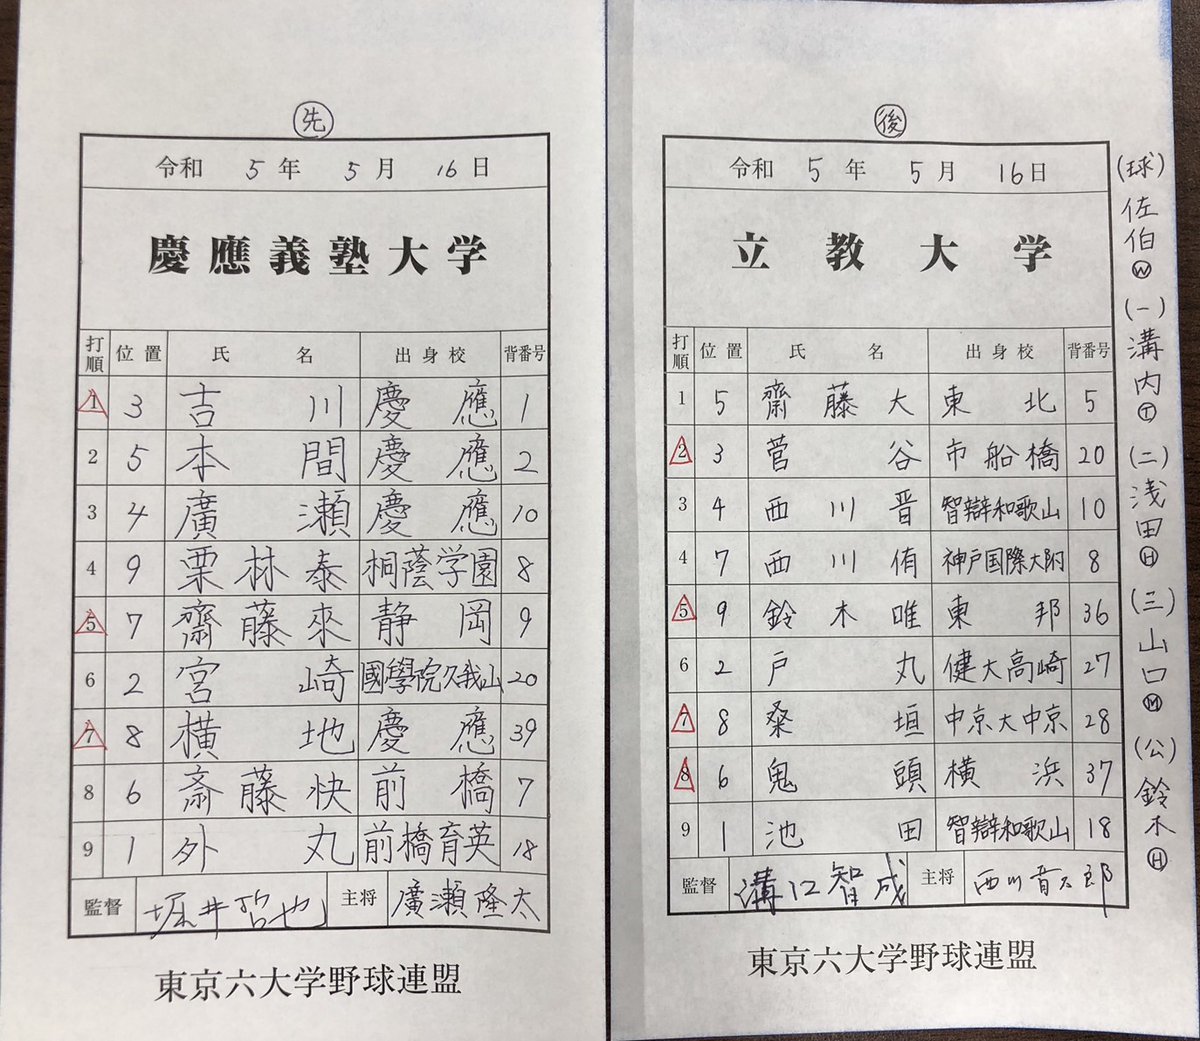 先
令和 5年 5月 16日
慶應義塾大学
打順 位置 氏名 出身校 背番号
1 3 吉川 慶應 1
2 5 本間 慶應 2
3 4 廣瀬 慶應 10
4 9 栗林泰 桐蔭学園 8
5 7 齋藤來 静岡 9
6 2 宮崎 國學院久我山 20
7 8 横地 慶應 39
8 6 斎藤快 前橋 7
9 1 外丸 前橋育英 18
監督 堀井哲也 主将 廣瀬隆太
東京六大学野球連盟
後
令和 5年 5月 16日
立教大学
打順 位置 氏名 出身校 背番号
1 5 齋藤大 東北 5
2 3 菅谷 市船橋 20
3 4 西川晋 智辯和歌山 10
4 7 西川侑 神戸国際大附 8
5 9 鈴木唯 東邦 36
6 2 戸丸 健大高崎 27
7 8 桑垣 中京大中京 28
8 6 鬼頭 横浜 37
9 1 池田 智辯和歌山 18
監督 溝口智成 主将 西川晋太郎
東京六大学野球連盟
(球)佐伯Ⓦ (一)溝内Ⓣ (二)浅田Ⓗ (三)山口Ⓜ (公)鈴木Ⓗ